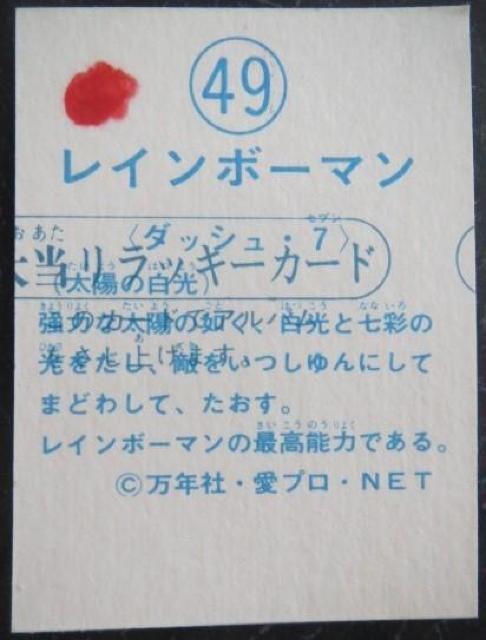 49
レインボーマン
〈ダッシュ・7〉
セブン
おあた
大当りラッキーカード
(太陽の白光)
強力な太陽の如く、白光と七彩の
光をだし、敵をいっしゆんにして
まどわして、たおす。
レインボーマンの最高能力である。
さいこうのうりょく
©万年社・愛プロ・NET